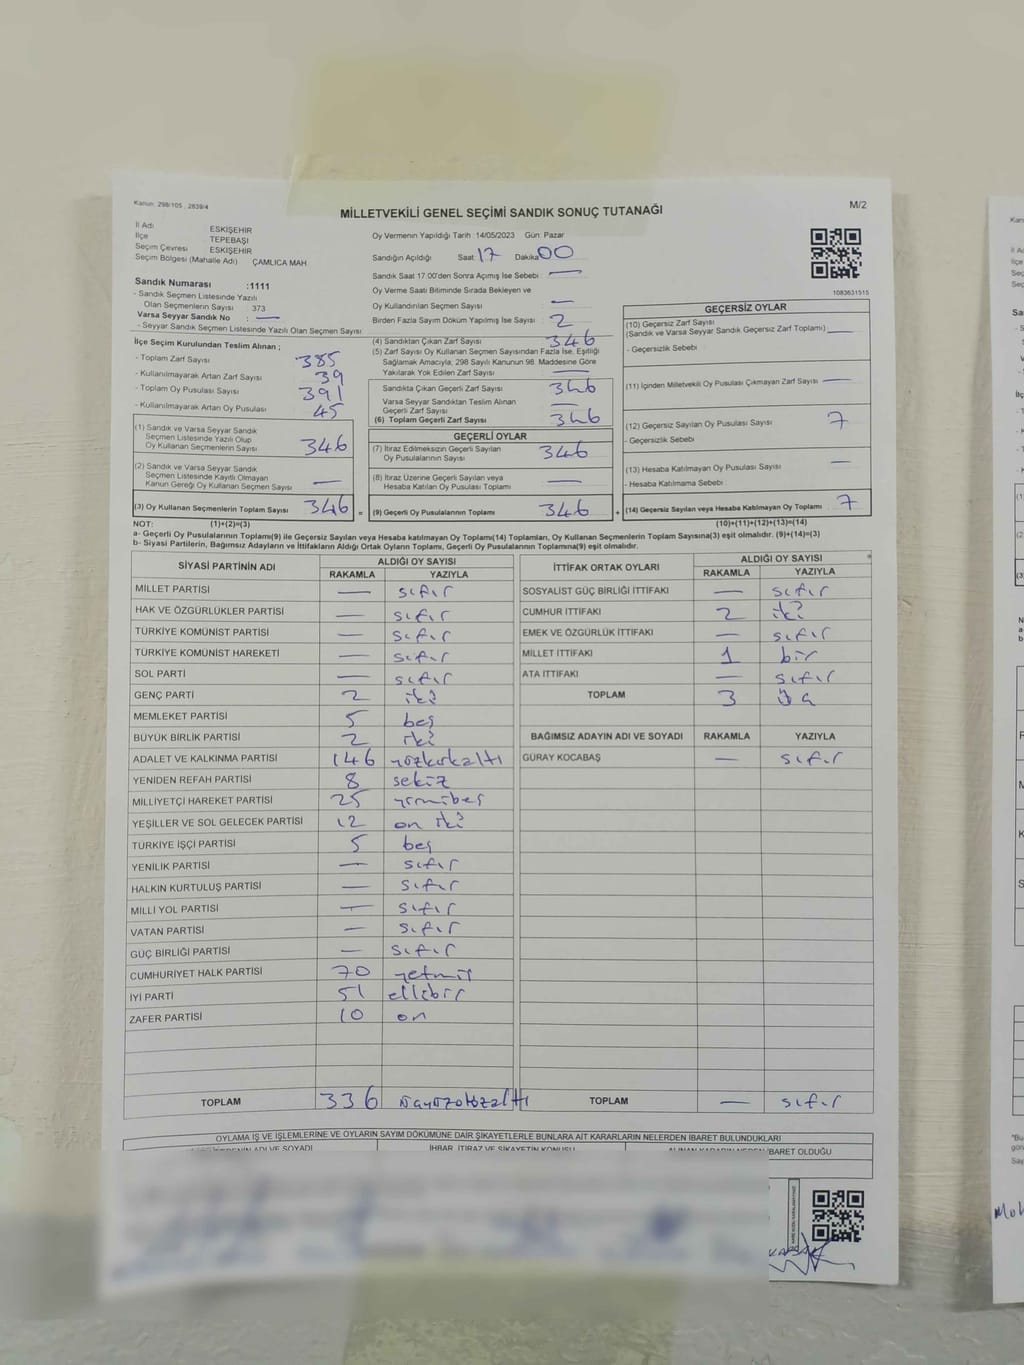 Kanun: 298/105 , 2839/4
MİLLETVEKİLİ GENEL SEÇİMİ SANDIK SONUÇ TUTANAĞI
M/2
İl Adı ESKİŞEHİR
İlçe TEPEBAŞI
Seçim Çevresi : ESKİŞEHİR
Seçim Bölgesi (Mahalle Adı) : ÇAMLICA MAH.
Oy Vermenin Yapıldığı Tarih : 14/05/2023 Gün: Pazar
Sandığın Açıldığı Saat: 17 Dakika 00
Sandık Saat 17.00'den Sonra Açımış İse Sebebi : —
Oy Verme Saati Bitiminde Sırada Bekleyen ve
Oy Kullandırılan Seçmen Sayısı : —
Birden Fazla Sayım Döküm Yapılmış İse Sayısı : 2
1083631515
Sandık Numarası :1111
- Sandık Seçmen Listesinde Yazılı
Olan Seçmenlerin Sayısı 373
Varsa Seyyar Sandık No : —
- Seyyar Sandık Seçmen Listesinde Yazılı Olan Seçmen Sayısı
İlçe Seçim Kurulundan Teslim Alınan ;
- Toplam Zarf Sayısı 385
- Kullanılmayarak Artan Zarf Sayısı 39
- Toplam Oy Pusulası Sayısı 391
- Kullanılmayarak Artan Oy Pusulası 45
(1) Sandık ve Varsa Seyyar Sandık
Seçmen Listesinde Yazılı Olup
Oy Kullanan Seçmenlerin Sayısı 346
(2) Sandık ve Varsa Seyyar Sandık
Seçmen Listesinde Kayıtlı Olmayan
Kanun Gereği Oy Kullanan Seçmen Sayısı —
(3) Oy Kullanan Seçmenlerin Toplam Sayısı 346
(4) Sandıktan Çıkan Zarf Sayısı 346
(5) Zarf Sayısı Oy Kullanan Seçmen Sayısından Fazla İse, Eşitliği
Sağlamak Amacıyla, 298 Sayılı Kanunun 98. Maddesine Göre
Yakılarak Yok Edilen Zarf Sayısı —
Sandıkta Çıkan Geçerli Zarf Sayısı 346
Varsa Seyyar Sandıktan Teslim Alınan
Geçerli Zarf Sayısı —
(6) Toplam Geçerli Zarf Sayısı 346
GEÇERLİ OYLAR
(7) İtiraz Edilmeksizin Geçerli Sayılan
Oy Pusulalarının Sayısı 346
(8) İtiraz Üzerine Geçerli Sayılan veya
Hesaba Katılan Oy Pusulaları Toplamı —
= (9) Geçerli Oy Pusulalarının Toplamı 346
GEÇERSİZ OYLAR
(10) Geçersiz Zarf Sayısı
(Sandık ve Varsa Seyyar Sandık Geçersiz Zarf Toplamı) —
- Geçersizlik Sebebi
(11) İçinden Milletvekili Oy Pusulası Çıkmayan Zarf Sayısı —
(12) Geçersiz Sayılan Oy Pusulası Sayısı 7
- Geçersizlik Sebebi
(13) Hesaba Katılmayan Oy Pusulası Sayısı —
- Hesaba Katılmama Sebebi
+ (14) Geçersiz Sayılan veya Hesaba Katılmayan Oy Toplamı 7
NOT: (1)+(2)=(3) (10)+(11)+(12)+(13)=(14)
a- Geçerli Oy Pusulalarının Toplamı(9) ile Geçersiz Sayılan veya Hesaba katılmayan Oy Toplam(14) Toplamları, Oy Kullanan Seçmenlerin Toplam Sayısına(3) eşit olmalıdır. (9)+(14)=(3)
b- Siyasi Partilerin, Bağımsız Adayların ve İttifakların Aldığı Ortak Oyların Toplamı, Geçerli Oy Pusulalarının Toplamına(9) eşit olmalıdır.
SİYASİ PARTİNİN ADI ALDIĞI OY SAYISI
RAKAMLA YAZIYLA
MİLLET PARTİSİ — sıfır
HAK VE ÖZGÜRLÜKLER PARTİSİ — sıfır
TÜRKİYE KOMÜNİST PARTİSİ — sıfır
TÜRKİYE KOMÜNİST HAREKETİ — sıfır
SOL PARTİ — sıfır
GENÇ PARTİ 2 iki
MEMLEKET PARTİSİ 5 beş
BÜYÜK BİRLİK PARTİSİ 2 iki
ADALET VE KALKINMA PARTİSİ 146 yüzkırkaltı
YENİDEN REFAH PARTİSİ 8 sekiz
MİLLİYETÇİ HAREKET PARTİSİ 25 yirmibeş
YEŞİLLER VE SOL GELECEK PARTİSİ 12 on iki
TÜRKİYE İŞÇİ PARTİSİ 5 beş
YENİLİK PARTİSİ — sıfır
HALKIN KURTULUŞ PARTİSİ — sıfır
MİLLİ YOL PARTİSİ — sıfır
VATAN PARTİSİ — sıfır
GÜÇ BİRLİĞİ PARTİSİ — sıfır
CUMHURİYET HALK PARTİSİ 70 yetmiş
İYİ PARTİ 51 ellibir
ZAFER PARTİSİ 10 on
TOPLAM 336 üçyüzotuzaltı
İTTİFAK ORTAK OYLARI ALDIĞI OY SAYISI
RAKAMLA YAZIYLA
SOSYALİST GÜÇ BİRLİĞİ İTTİFAKI — sıfır
CUMHUR İTTİFAKI 2 iki
EMEK VE ÖZGÜRLÜK İTTİFAKI — sıfır
MİLLET İTTİFAKI 1 bir
ATA İTTİFAKI — sıfır
TOPLAM 3 üç
BAĞIMSIZ ADAYIN ADI VE SOYADI RAKAMLA YAZIYLA
GÜRAY KOCABAŞ — sıfır
TOPLAM — sıfır
OYLAMA İŞ VE İŞLEMLERİNE VE OYLARIN SAYIM DÖKÜMÜNE DAİR ŞİKAYETLERLE BUNLARA AİT KARARLARIN NELERDEN İBARET BULUNDUKLARI
İHBAR, İTİRAZ VE ŞİKAYETİN KONUSU